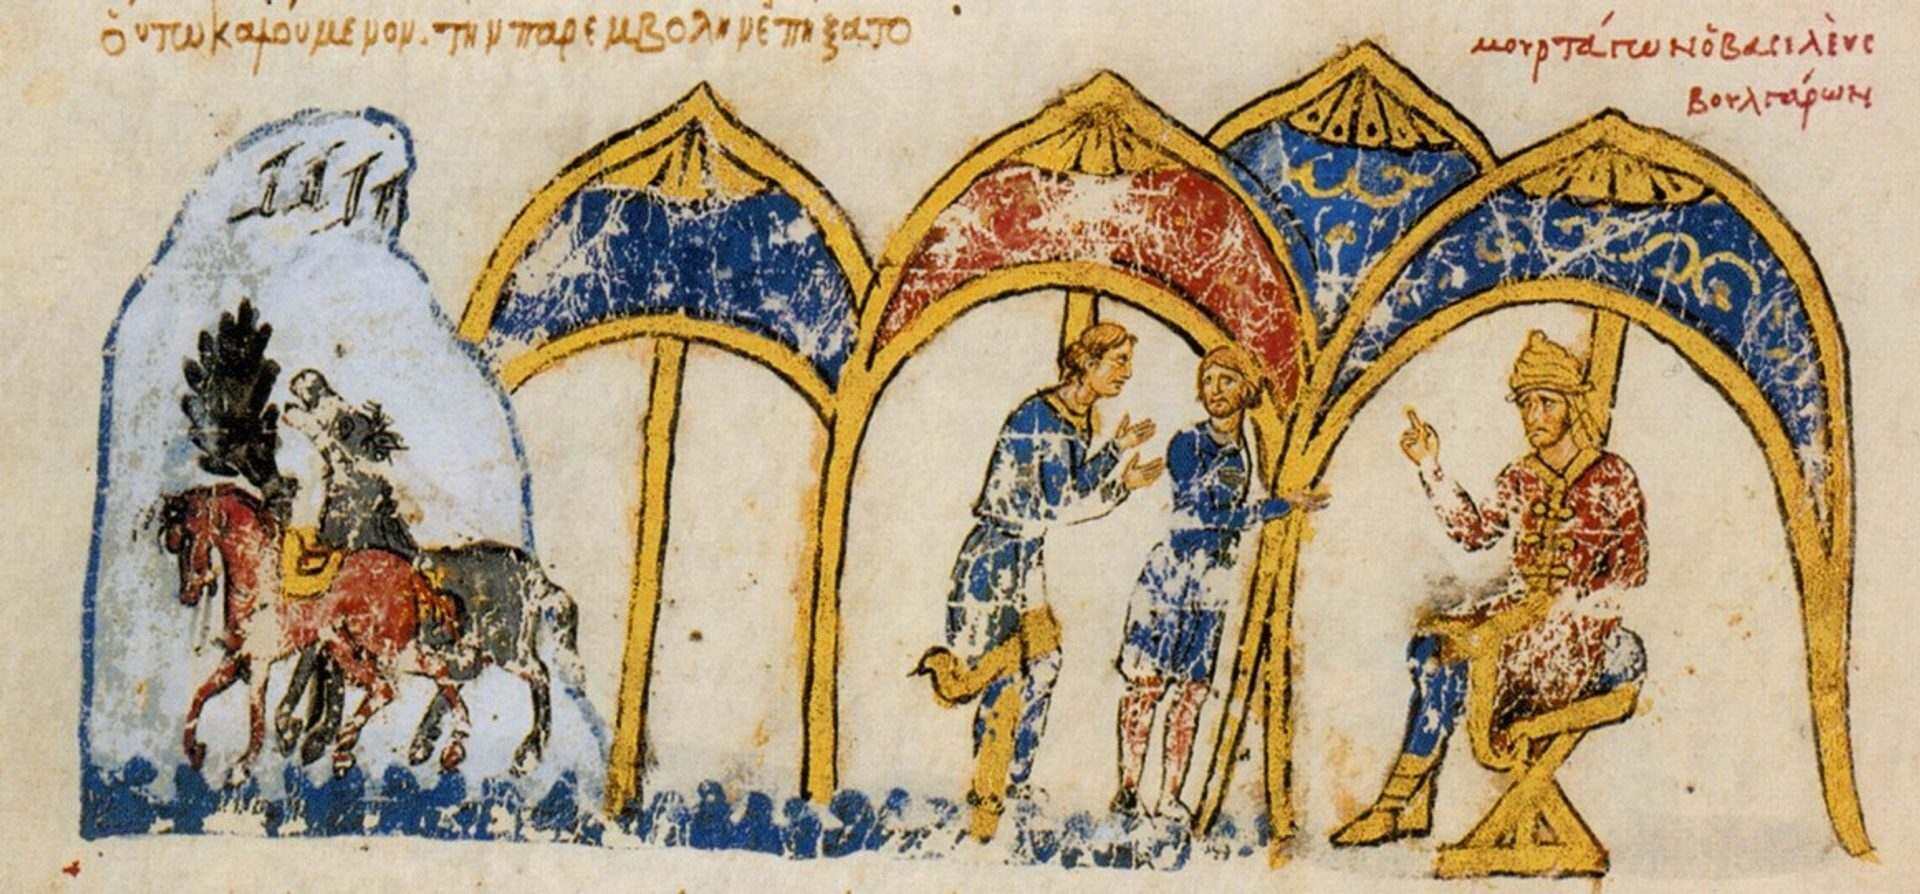 οὑτωκαλουμενον. τὴν παρεμβολὴν ἐπήξατο
μουρτάγων ὁ βασιλεὺς
βουλγάρων